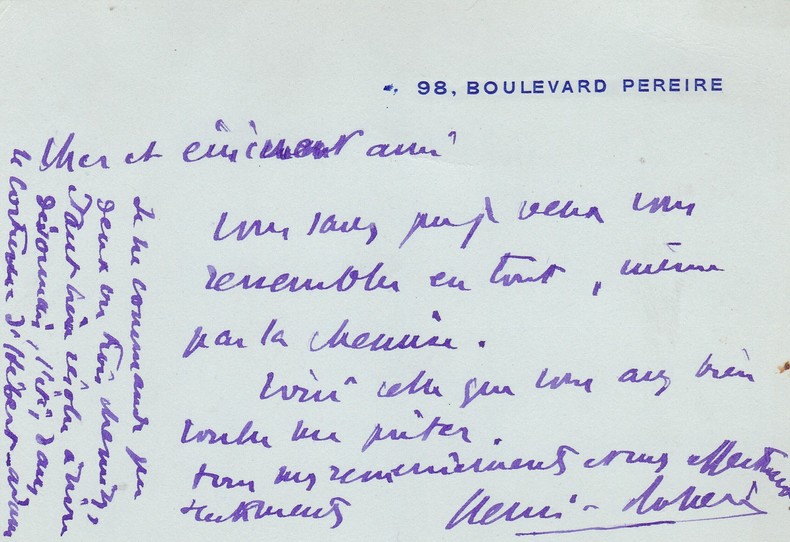 98, BOULEVARD PEREIRE
Cher et éminent ami
vous savez que je veux vous
ressembler en tout, même
par la chemise.
Voici celle que vous avez bien
voulu me prêter.
tous mes remerciements et mes affectueux
sentiments
Henri-Robert
Je ne commande que
deux ou trois chemises,
étant bien résolu à vivre
désormais, l'été, dans
le costume d'Hébert